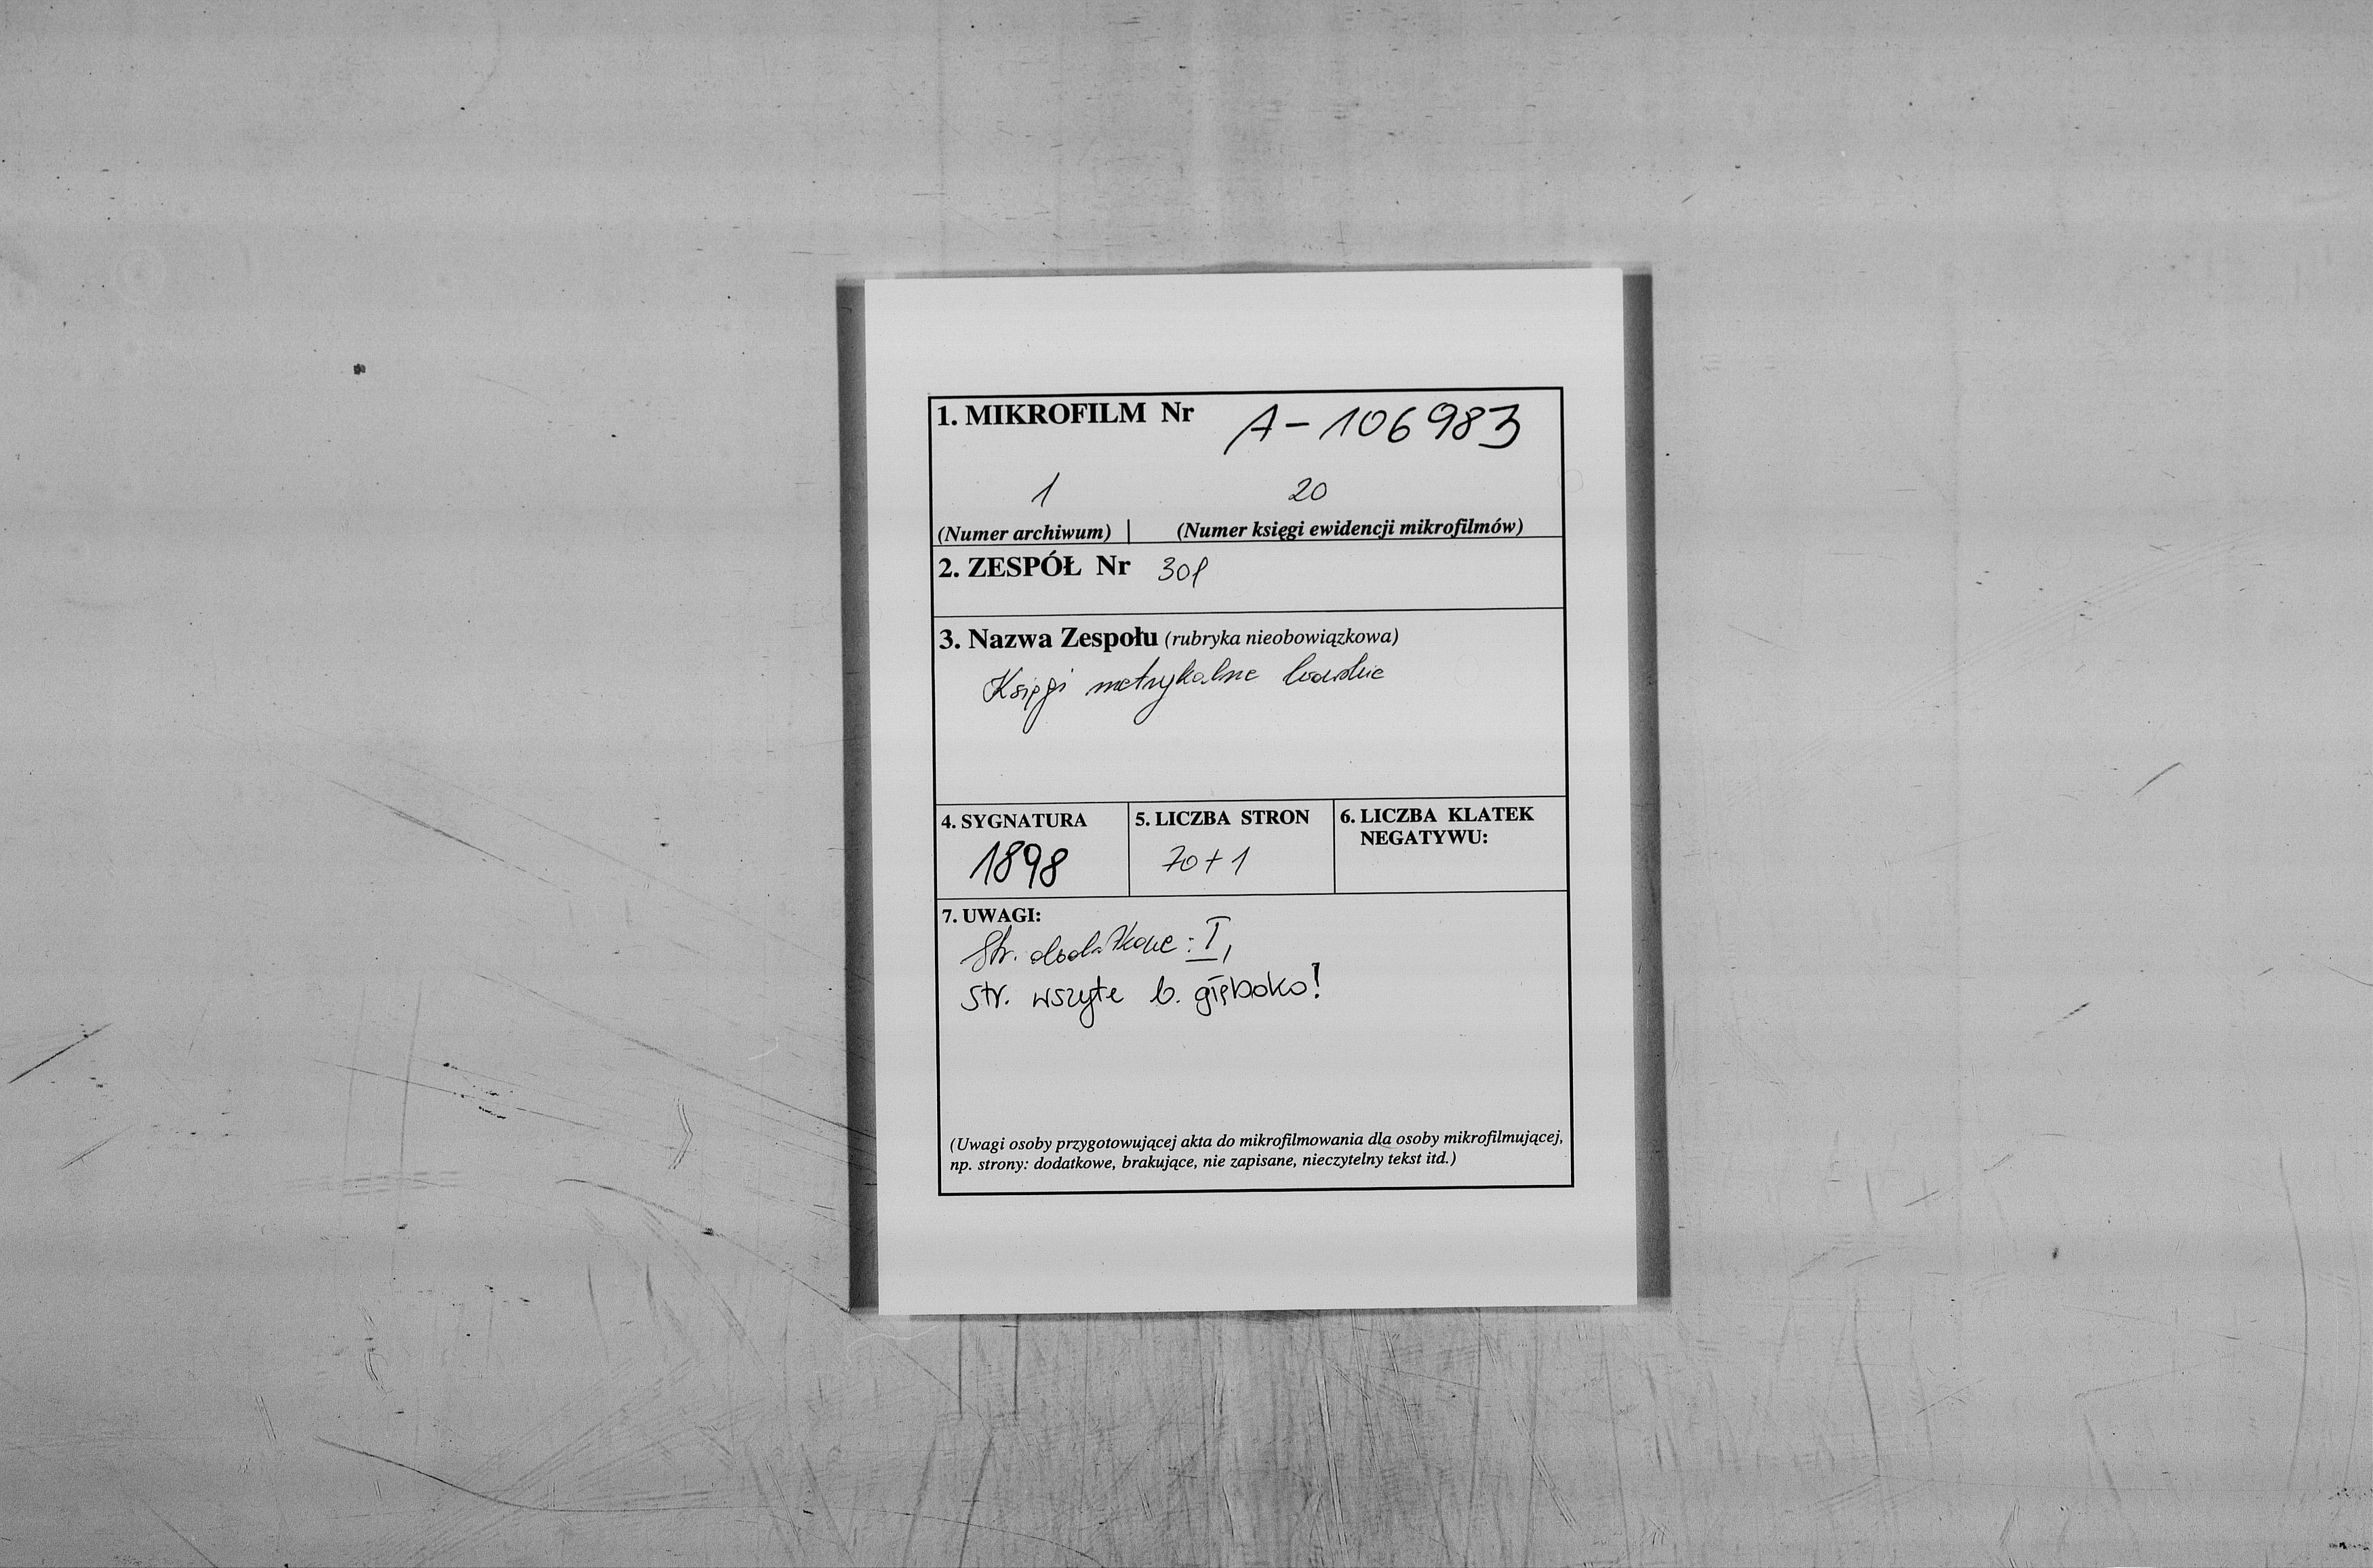 1. MIKROFILM Nr A-106983
1 20
(Numer archiwum) | (Numer księgi ewidencji mikrofilmów)
2. ZESPÓŁ Nr 301
3. Nazwa Zespołu (rubryka nieobowiązkowa)
Księgi metrykalne
4. SYGNATURA 5. LICZBA STRON 6. LICZBA KLATEK
NEGATYWU:
1898 70+1
7. UWAGI:
Str. dodatkowe: I,
str. wszyte b. głęboko!
(Uwagi osoby przygotowującej akta do mikrofilmowania dla osoby mikrofilmującej,
np. strony: dodatkowe, brakujące, nie zapisane, nieczytelny tekst itd.)